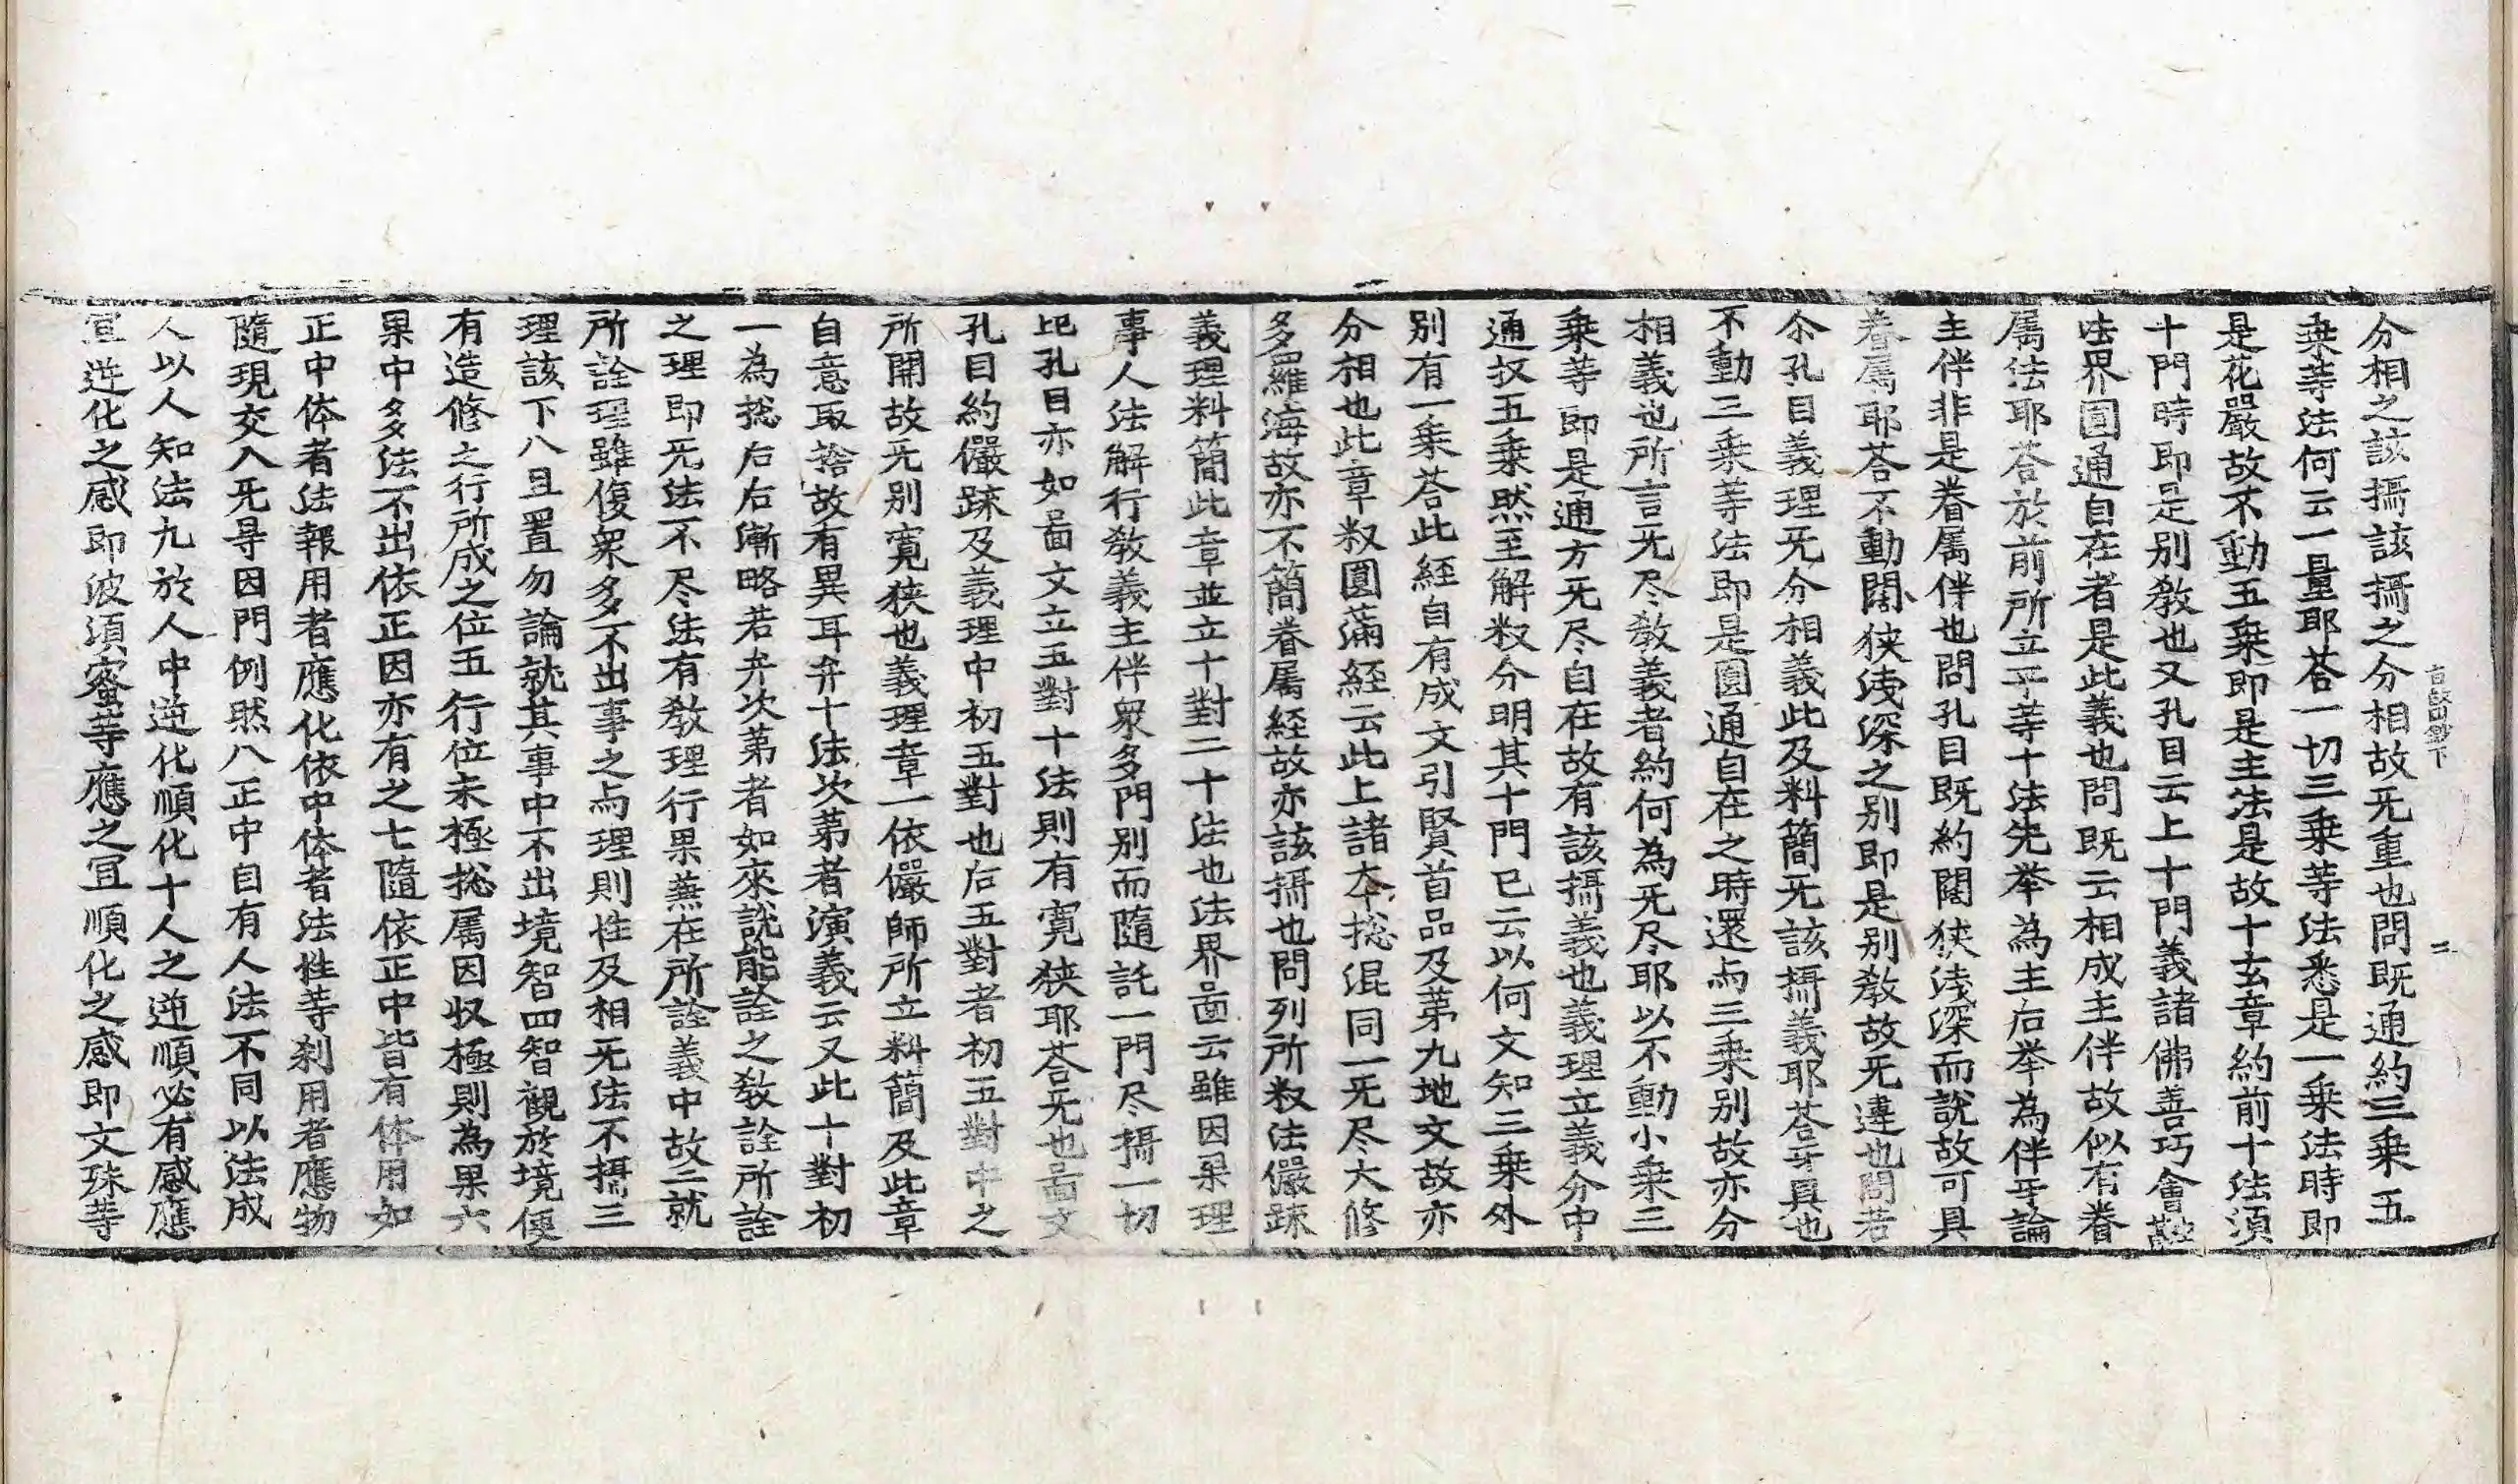 旨歸章圓通鈔下 三
分相之該攝該攝之分相故旡重也問既通約三乘五
乘等法何云一量耶荅一切三乘等法悉是一乘法時即
是花嚴故不動五乘即是主法是故十玄章約前十法須
十門時即是別教也又孔目云上十門義諸佛善巧會融
法界圓通自在者是此義也問既云相成主伴故似有眷
属法耶荅於前所立平等十法先举為主后举為伴乎論
主伴非是眷属伴也問孔目既約闊狭淺深而說故可具
眷属耶荅不動闊狭淺深之別即是別教故旡違也問若
尒孔目義理旡分相義此及料簡旡該攝義耶荅乎具也
不動三乘等法即是圓通自在之時還与三乘別故亦分
相義也所言旡尽教義者約何為旡尽耶以不動小乘三
乘等即是通方旡尽自在故有該攝義也義理立義分中
通収五乘然至解釈分明其十門已云以何文知三乘外
別有一乘荅此経自有成文引賢首品及苐九地文故亦
分相也此章釈圓滿経云此上諸夲摠混同一旡尽大修
多羅海故亦不簡眷属経故亦該攝也問列所釈法儼踈
義理料簡此章並立十對二十法也法界啚云雖因果理
事人法解行教義主伴衆多門別而隨託一門尽攝一切
地孔目亦如啚文立五對十法則有寛狭耶荅旡也啚文
孔目約儼踈及義理中初五對也后五對者初五對中之
所開故旡別寛狭也義理章一依儼師所立料簡及此章
自意取捨故有異耳弁十法次苐者演義云又此十對初
一為摠右右漸略若弁次苐者如來說能詮之教詮所詮
之理即旡法不尽法有教理行果蕪在所詮義中故二就
所詮理雖復衆多不出事之与理則性及相旡法不攝三
理該下八且置勿論就其事中不出境智四智觀於境便
有造修之行所成之位五行位未極摠属因収極則為果六
果中多法不出依正因亦有之七隨依正中皆有体用如
正中体者法報用者應化依中体者法性等刹用者應物
隨現交入旡㝵因門例然八正中自有人法不同以法成
人以人知法九於人中逆化順化十人之逆順必有感應
宜逆化之感即波湏蜜等應之宜順化之感即文殊等